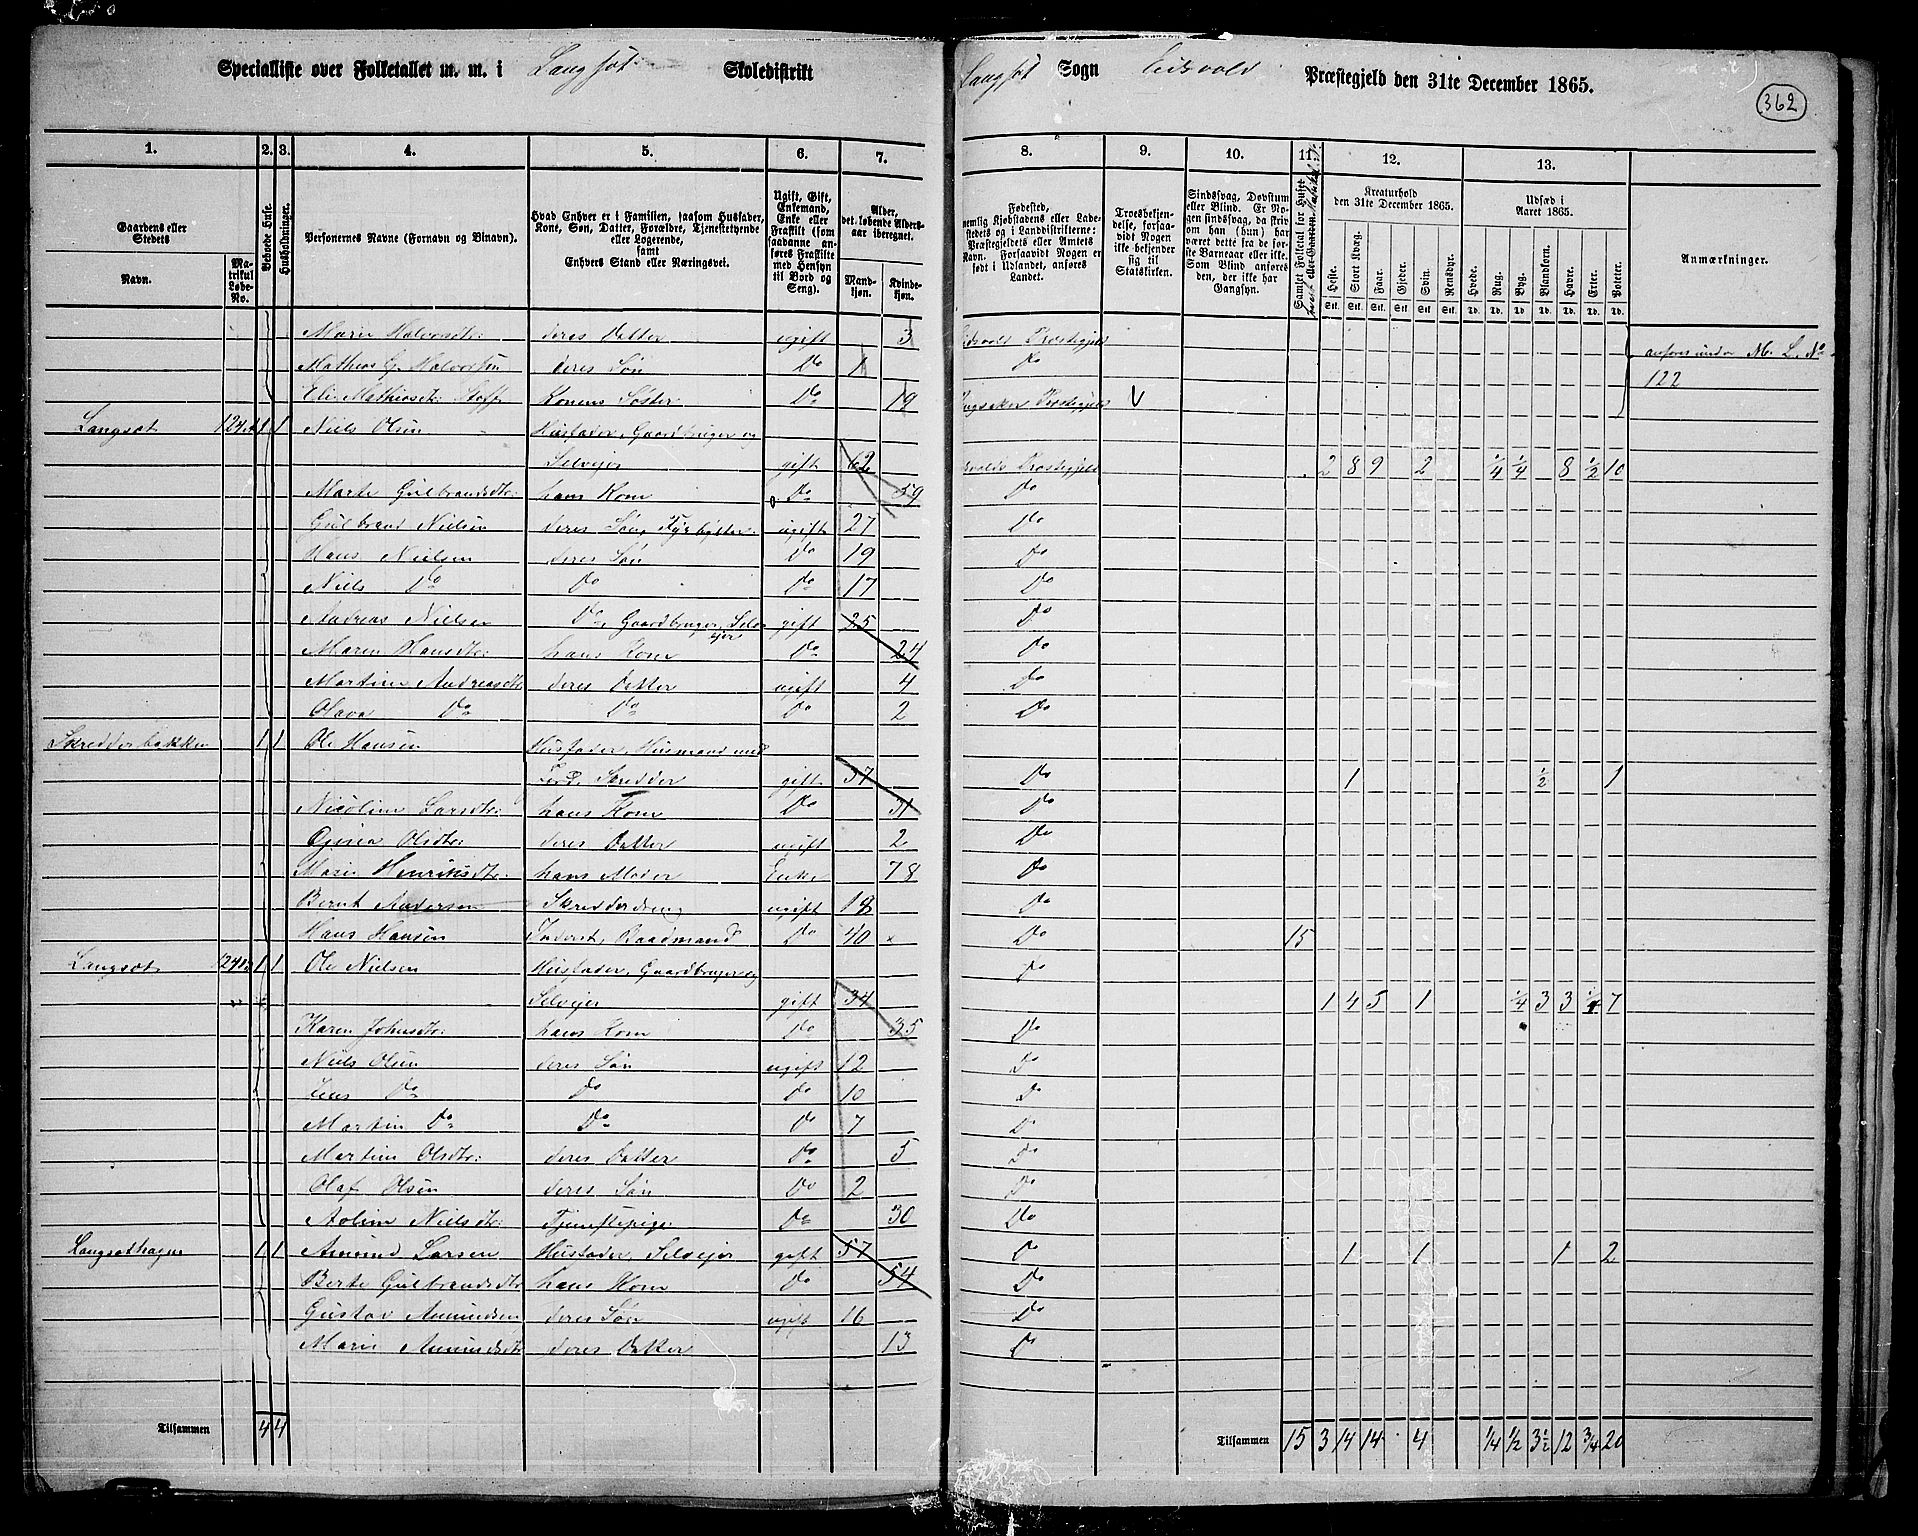 Specialliste over Folketallet m. m. i Langset Skoledistrikt Langset Sogn Eidsvold Præstegjeld den 31te December 1865.
362
1. 2. 3. 4. 5. 6. 7. 8. 9. 10. 11. 12. 13.
Gaardens eller Stedets
Navn.
Matrikul Løbe-No.
Beboede Huse.
Husholdninger.
Personernes Navne (Fornavn og Binavn).
Hvad Enhver er i Familien, saasom Husfader, Kone, Søn, Datter, Forældre, Tjenestetydende eller Logerende, samt Enhvers Stand eller Næringsvei.
Ugift, Gift, Enkemand, Enke eller Fraskilt (som saadanne anføres Fraskilte med Hensyn til Bord og Seng).
Alder, det løbende Aldersaar iberegnet.
Mandkjøn. Kvindekjøn.
Fødested, nemlig Kjøbstadens eller Ladestedets og i Landdistrikterne: Præstegjeldets eller Amtets Navn. Forsaavidt Nogen er født i Udlandet, anføres Landet.
Troesbekjendelse, forsaavidt Nogen ikke bekjender sig til Statskirken.
Sindssvag, Døvstum eller Blind. Er Nogen sindssvag, da skrives om han (hun) har været dette fra de første Barneaar eller ikke. Som Blind anføres den, der ikke har Gangsyn.
Kreaturhold den 31te December 1865.
Heste. Stort Kvæg. Faar. Gjeder. Svin. Rensdyr.
Udsæd i Aaret 1865.
Hvede. Rug. Byg. Blandkorn. Havre. Erter. Poteter.
Anmærkninger.
Marie Halvorsdtr: deres Datter ugift 3 Eidsvold Præstegjeld
Mathias G. Halvorsen deres Søn Do 1 Do anføres under M. L. No
Eli Mathiasdtr: Konens Søster Do 19 Ringsaker Præstegjeld V 122
Langset 124 1 1 Niels Olsen Husfader, Gaardbruger og
Selveier gift 62 Præstegjeld 2 8 9 2 1/4 1/4 8 1/2 10
Marte Gulbrandsdtr: hans Kone Do 59 Do
Gulbrand Nielsen deres Søn, Fyrbøder ugift 27 Do
Hans Nielsen deres Søn Do 19 Do
Niels Do Do Do 17 Do
Andreas Nielsen Do, Gaardbruger, Selveier gift 25 Do
Maren Hansdtr: hans Kone Do 24 Do
Martine Andreasdtr deres Datter ugift 4 Do
Olava Do Do Do 2 Do
Skredderbakken 1 1 Ole Hansen Husfader, Husmand med
Jord, Skredder gift 37 Do 1 1/2 1
Nicoline Larsdtr: hans Kone Do 31 Do
Olsdtr: deres Datter ugift 2 Do
Marie Henriksdtr: hans Moder Enke 78 Do
Bernt Andersen Skredderdreng ugift 18 Do
Hans Hansen Inderst, Baadmand Do 40 Do 15
Langset 124 1 1 Ole Nielsen Husfader, Gaardbruger og Do
Selveier gift 34 1 4 5 1 1/4 3 3 1/4 7
Karen Johnsdtr: hans Kone Do 35 Do
Niels Olsen deres Søn ugift 12 Do
Jens Do Do Do 10 Do
Martin Do Do Do 7 Do
Martine Olsdtr: deres Datter Do 5 Do
Olaf Olsen deres Søn Do 2 Do
Nielsdtr: Tjenestepige Do 30 Do
Langsethagen 1 1 Amund Larsen Husfader, Selveier gift 57 Do 1 1 1 2
Berte Gulbrandsdtr hans Kone Do 54 Do
Gustav Amundsen deres Søn ugift 16 Do
Marie Amundsdtr deres Datter 13 Do
Tilsammen 4 4 Tilsammen 15 3 14 14 4 1/4 1/2 3 1/2 12 3/4 20